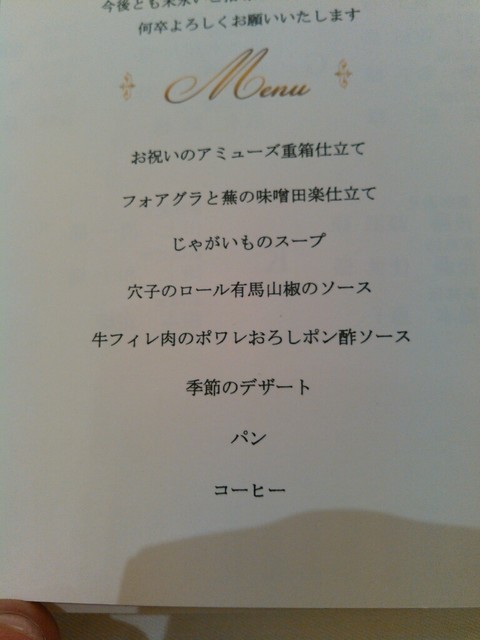 今後とも末永い
何卒よろしくお願いいたします
Menu
お祝いのアミューズ重箱仕立て
フォアグラと蕪の味噌田楽仕立て
じゃがいものスープ
穴子のロール有馬山椒のソース
牛フィレ肉のポワレおろしポン酢ソース
季節のデザート
パン
コーヒー